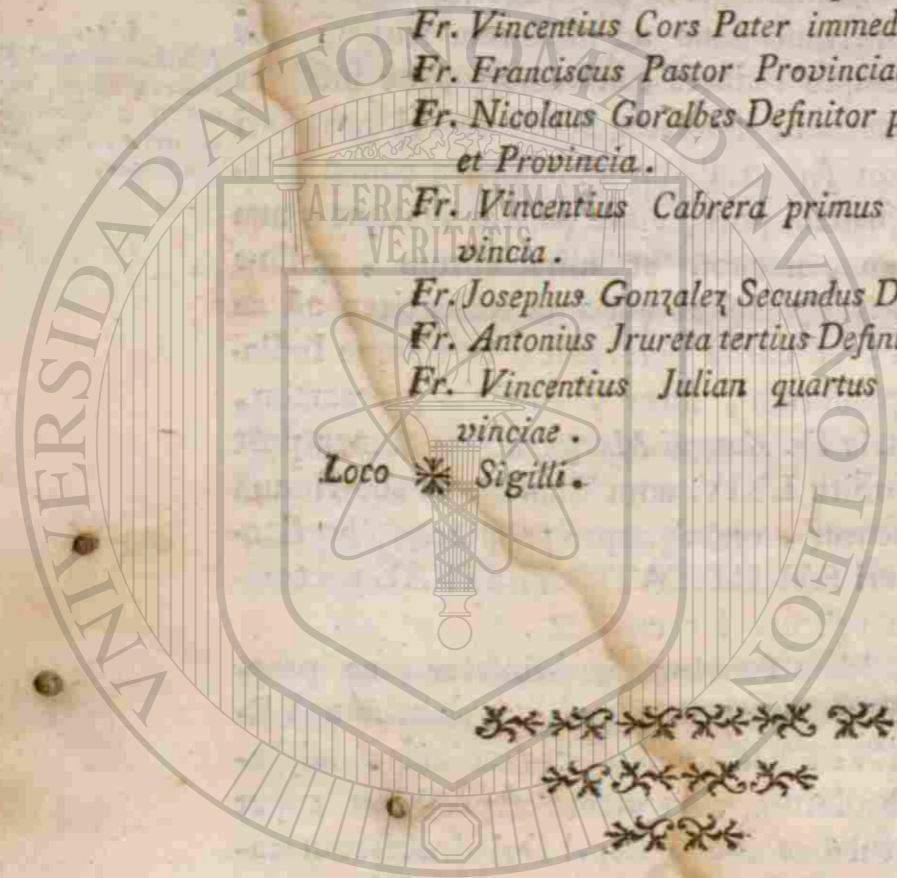 Fr. Vincentius Cors Pater immed
Fr. Franciscus Pastor Provincia
Fr. Nicolaus Goralbes Definitor p
et Provincia.
Fr. Vincentius Cabrera primus
vincia.
Fr. Josephus Gonzalez Secundus D
Fr. Antonius Jrureta tertius Defini
Fr. Vincentius Julian quartus
vinciae.
Loco Sigilli.
UNIVERSIDAD AUTONOMA DE NUEVO LEON
ALERE FLAMMAM
VERITATIS